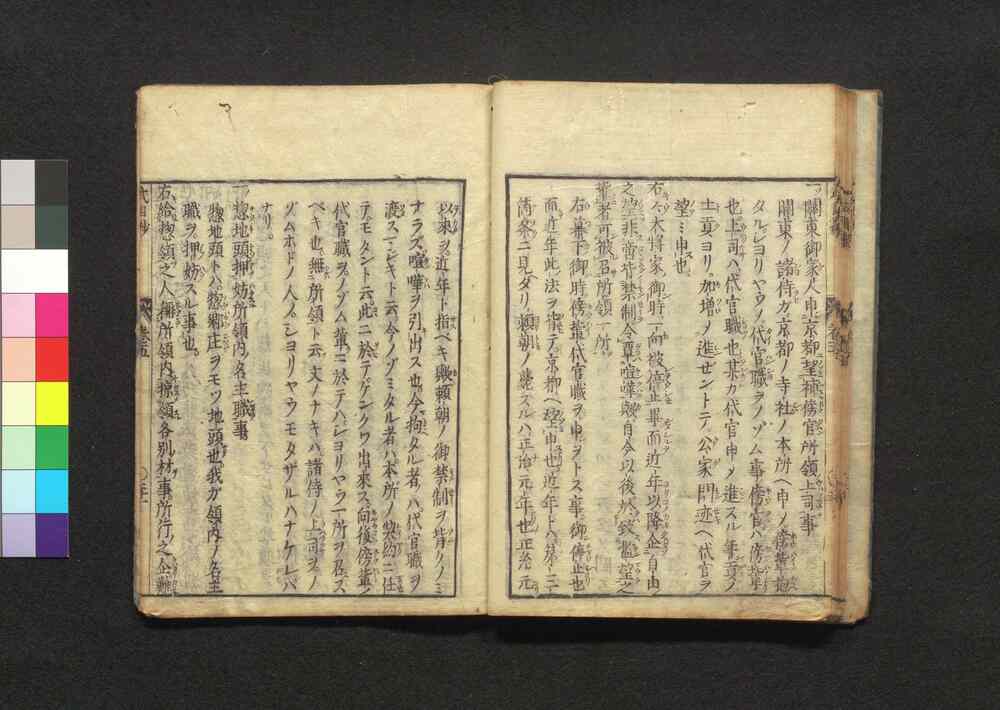 一關東御家人申京都望補傍官所領上司事
關東ノ諸侍ガ京都ノ寺社ノ本所ヘ申ノ傍輩抱
タルシヨリヤウノ代官職ヲノゾム事傍官ハ傍輩
也上司ハ代官職也某ガ代官申メ進スル年貢ノ
土貢ヨリ加増ノ進ゼントテ公家門跡ヘ代官ヲ
望ミ申也
右々大將家御時一向被停止畢而近年以降企自由
之望非啻背禁制令覃喧嘩歟自今以後於致濫望之
輩者可被召所領一所
右幕下御時傍輩代官職ヲ申ヲトス事御停止也
而近年此法ヲ背テ京都ヘ望申也近年トハ第三十
箇条ニ見ヘタリ頼朝ノ薨スルハ正治元年也正治元
以来ヲ近年ト指ベキ歟頼朝ノ御禁制ヲ背クノミ
ナラズ喧嘩ヲ引出ス也今拘タル者ハ代官職ヲ
渡スマジキト云今ノゾミタル者ハ本所ノ契約ニ任
テモタント云此ニ於テケンクワ出来ス向後傍輩ノ
代官職ヲノゾム輩ニ於テハシヨリヤウ一所ヲ召ス
ベキ也無所領ト云文ノナキハ諸侍ノ上司ヲノ
ゾムホドノ人ノシヨリヤウモタザルハナケレバ
ナリ
一惣地頭押妨所領内名主職事
惣地頭トハ惣郷庄ヲモツ地頭也我ガ領内ノ名主
職ヲ押妨スル事也
右給惣領之人稱所領内掠領各別村事所行之企難